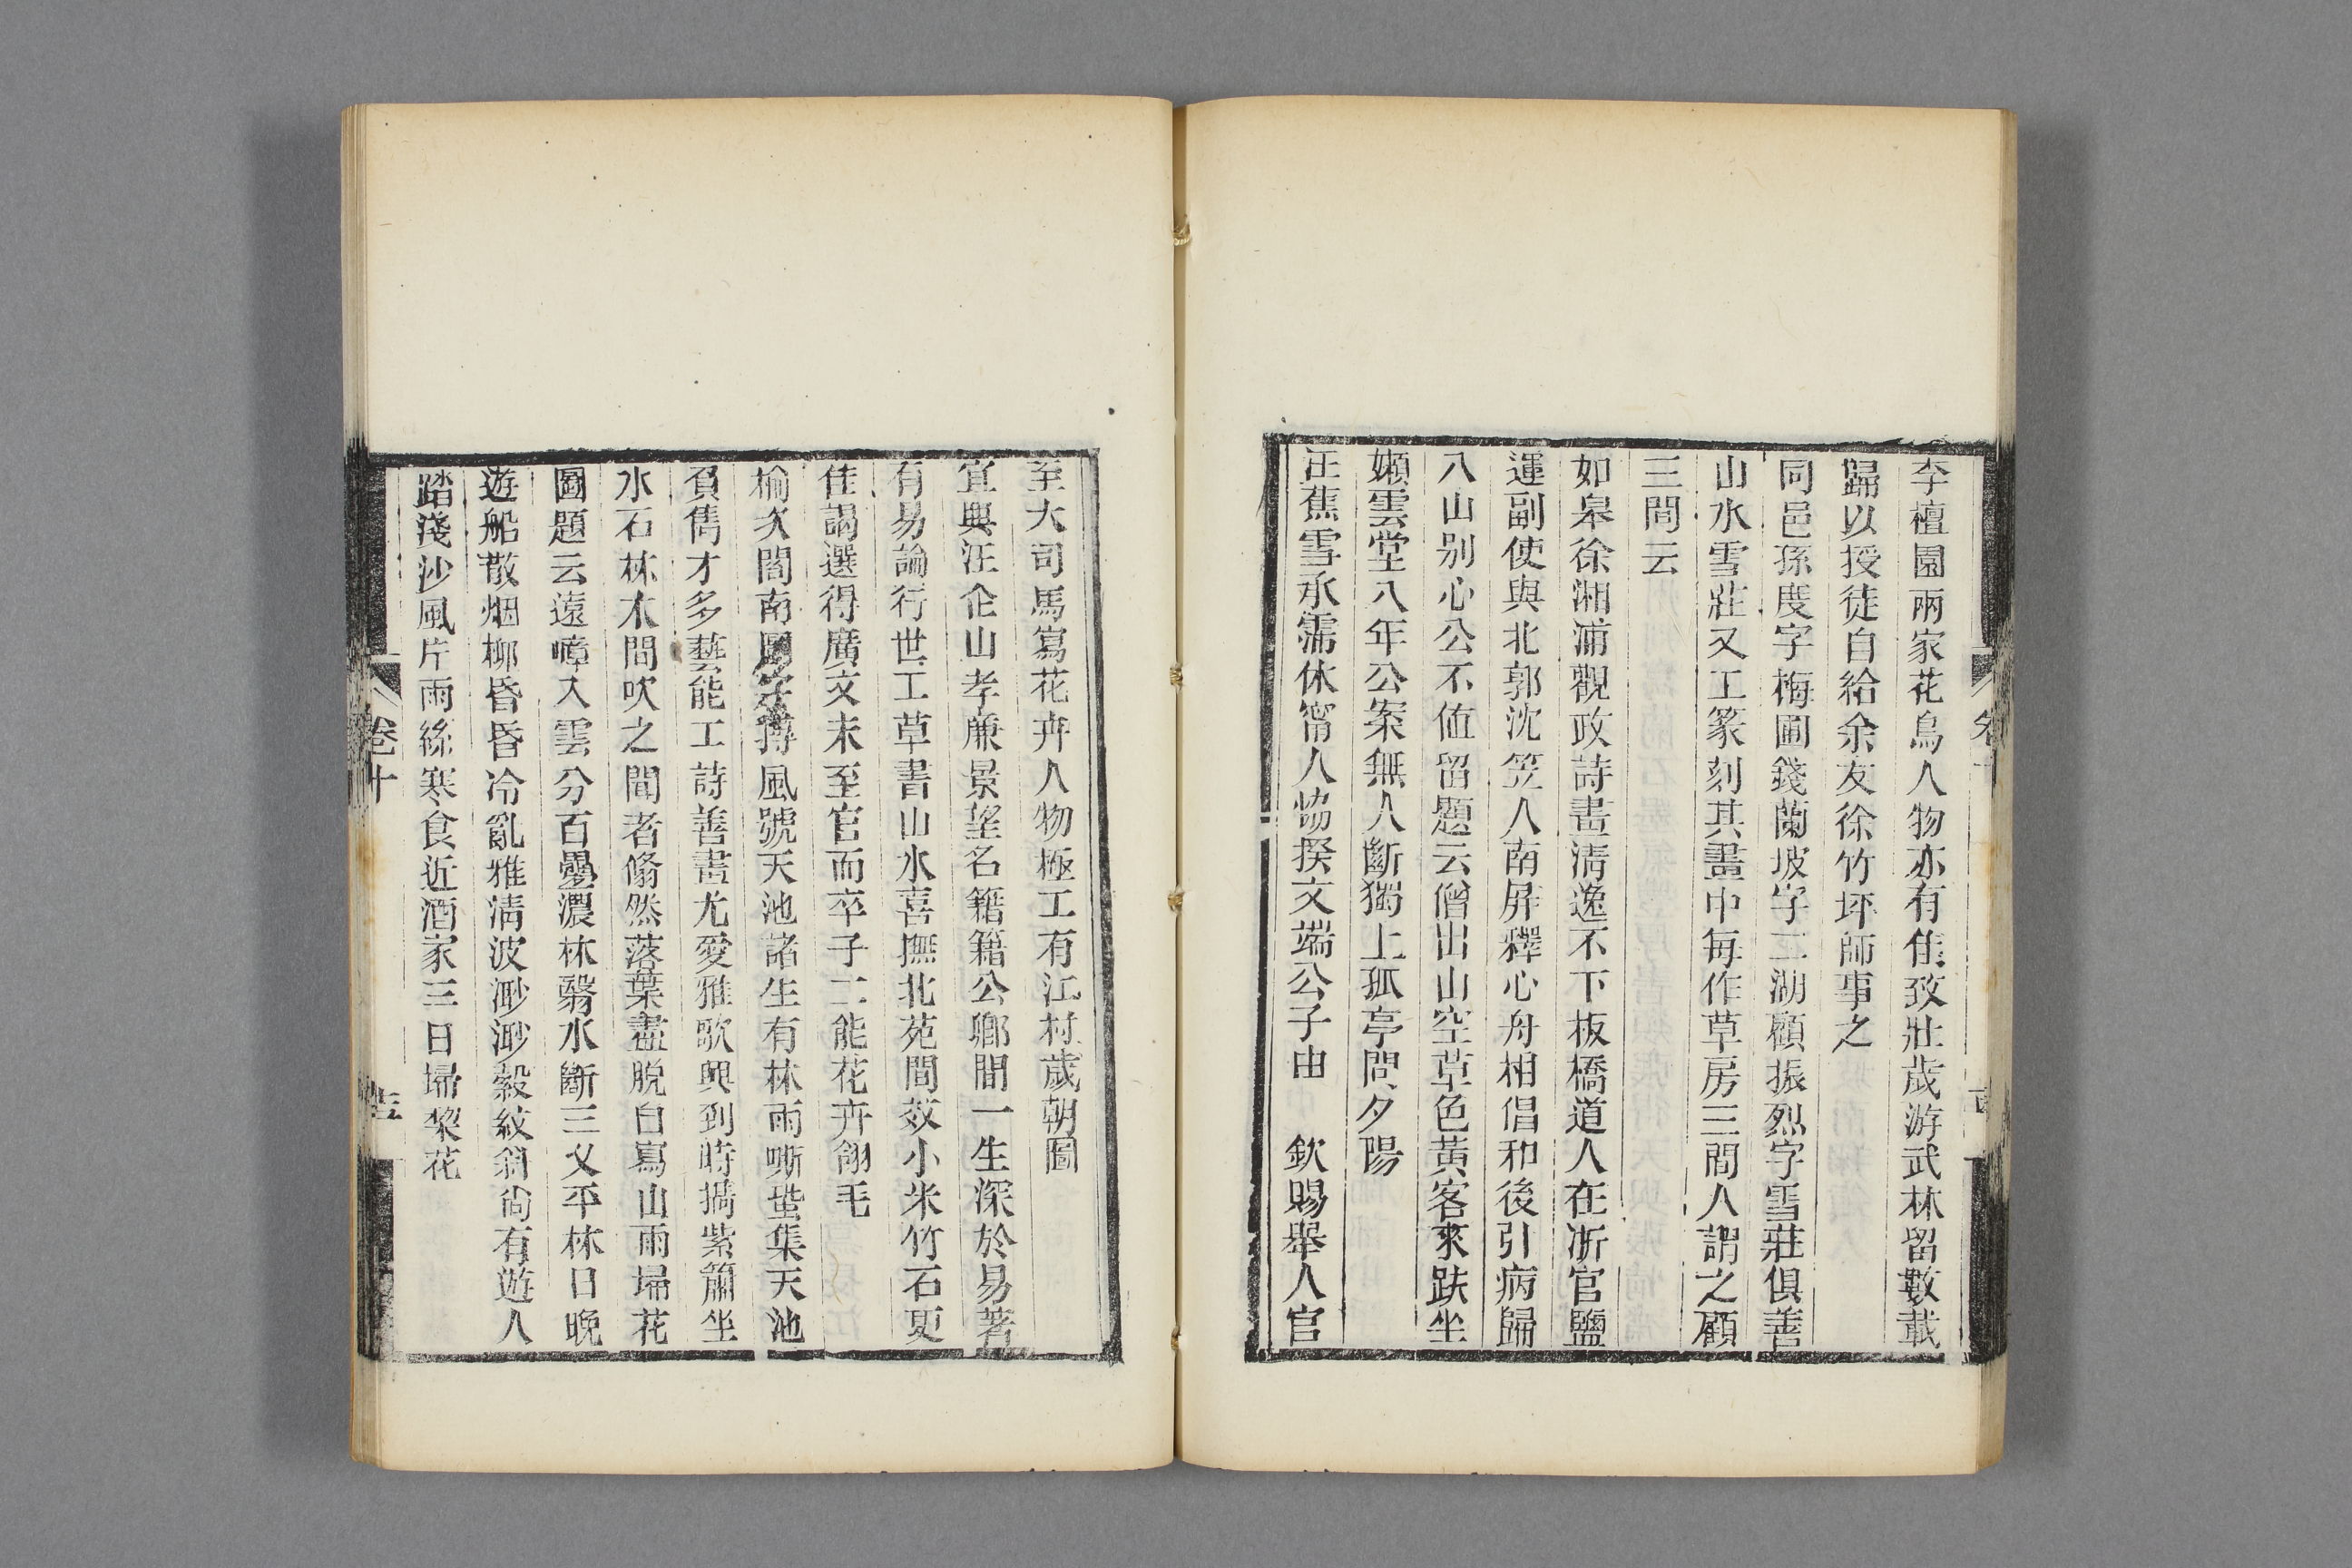 李檀園兩家花鳥人物亦有隹致壯歲游武林留數載
歸以授徒自給余友徐竹坪師事之
同邑孫度字梅圃錢蘭坡字二湖顧振烈字雪莊俱善
山水雪莊又工篆刻其畫中每作草房三間人謂之顧
三間云
如皋徐湘浦觀政詩畫淸逸不下板橋道人在浙官鹽
運副使與北郭沈笠人南屏釋心舟相倡和後引病歸
八山别心公不値留題云僧出山空草色黃客來趺坐
嬾雲堂八年公案無人斷獨上孤亭問夕陽
汪蕉雪承霈休甯人協揆文端公子由 欽賜舉人官
卷十
至大司馬寫花卉人物極工有江村歲朝圖
宜興汪企山孝廉景望名籍籍公鄉間一生深於易著
有易論行世工草書山水喜撫北苑間效小米竹石更
佳謁選得廣文未至官而卒子二能花卉翎毛
榆次閻南圖字搏風號天池諸生有林雨嘶蛩集天池
負雋才多藝能工詩善畫尤愛雅歌興到時攜紫簫坐
水石林木間吹之聞者翛然落葉盡脫自寫山雨埽花
圖題云遠嶂入雲分百疊濃林翳水斷三义平林日晚
遊船散烟柳昏昏冷亂雅淸波渺渺縠紋斜尙有遊人
踏淺沙風片雨絲寒食近酒家三日埽棃花
卷十